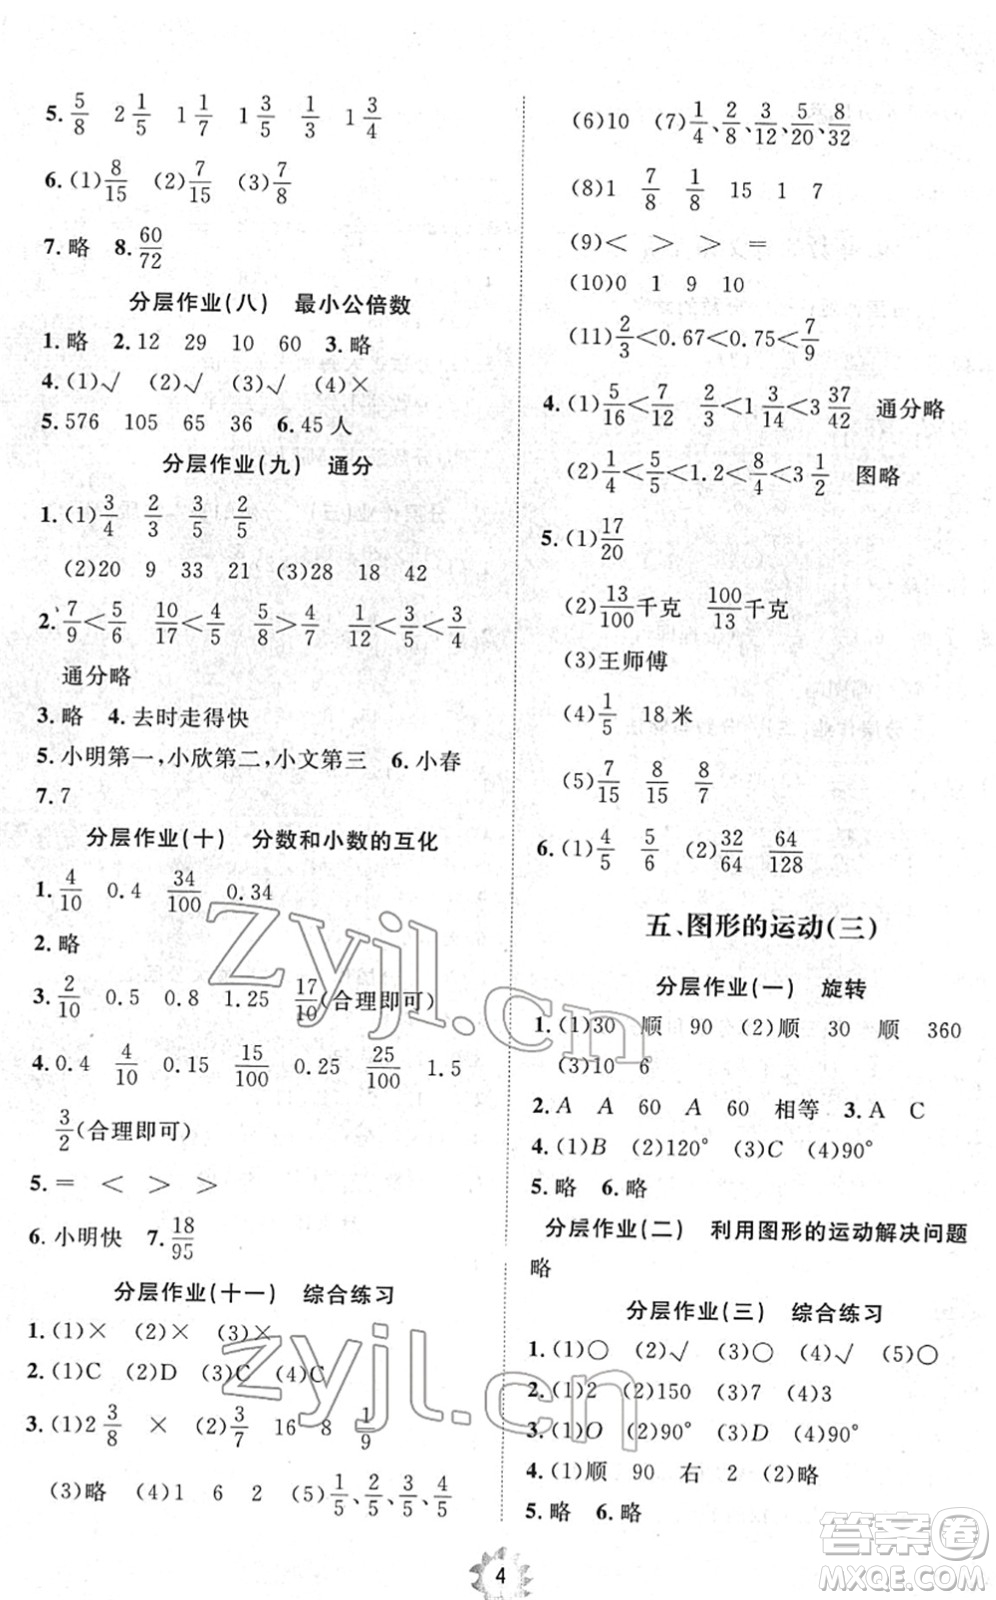 5. 5/8 2 1/5 1 1/7 1 3/5 1/3 1 3/4
6. (1) 8/15 (2) 7/15 (3) 7/8
7. 略 8. 60/72
分层作业(八) 最小公倍数
1. 略 2. 12 29 10 60 3. 略
4. (1)√ (2)√ (3)√ (4)×
5. 576 105 65 36 6. 45人
分层作业(九) 通分
1. (1) 3/4 2/3 3/5 2/5
(2)20 9 33 21 (3)28 18 42
2. 7/9<5/6 10/17<4/5 5/8>4/7 1/12<3/5<3/4
通分略
3. 略 4. 去时走得快
5. 小明第一,小欣第二,小文第三 6. 小春
7. 7
分层作业(十) 分数和小数的互化
1. 4/10 0.4 34/100 0.34
2. 略
3. 2/10 0.5 0.8 1.25 17/10(合理即可)
4. 0.4 4/10 0.15 15/100 0.25 25/100 1.5
3/2(合理即可)
5. = < > >
6. 小明快 7. 18/95
分层作业(十一) 综合练习
1. (1)× (2)× (3)×
2. (1)C (2)D (3)C (4)C
3. (1)2 3/8 × (2)3/7 16 8 1/9
(3)略 (4)1 6 2 (5)1/5、2/5、3/5、4/5
(6)10 (7)1/4、2/8、3/12、5/20、8/32
(8)1 7/8 1/8 15 1 7
(9)< > > =
(10)0 1 9 10
(11)2/3<0.67<0.75<7/9
4. (1)5/16<7/12 2/3<1 3/14<3 37/42 通分略
(2)1/4<5/5<1.2<8/4<3 1/2 图略
5. (1)17/20
(2)13/100千克 100/13千克
(3)王师傅
(4)1/5 18米
(5)7/15 8/15 8/7
6. (1)4/5 5/6 (2)32/64 64/128
五、图形的运动(三)
分层作业(一) 旋转
1. (1)30 顺 90 (2)顺 30 顺 360
(3)10 6
2. A A 60 A 60 相等 3. A C
4. (1)B (2)120° (3)C (4)90°
5. 略 6. 略
分层作业(二) 利用图形的运动解决问题
略
分层作业(三) 综合练习
1. (1)○ (2)√ (3)○ (4)√ (5)○
2. (1)2 (2)150 (3)7 (4)3
3. (1)O (2)90° (3)D (4)90°
4. (1)顺 90 右 2 (2)略
5. 略 6. 略
4
zyjl.cn
zyjl.cn
答案卷
MXQE.COM